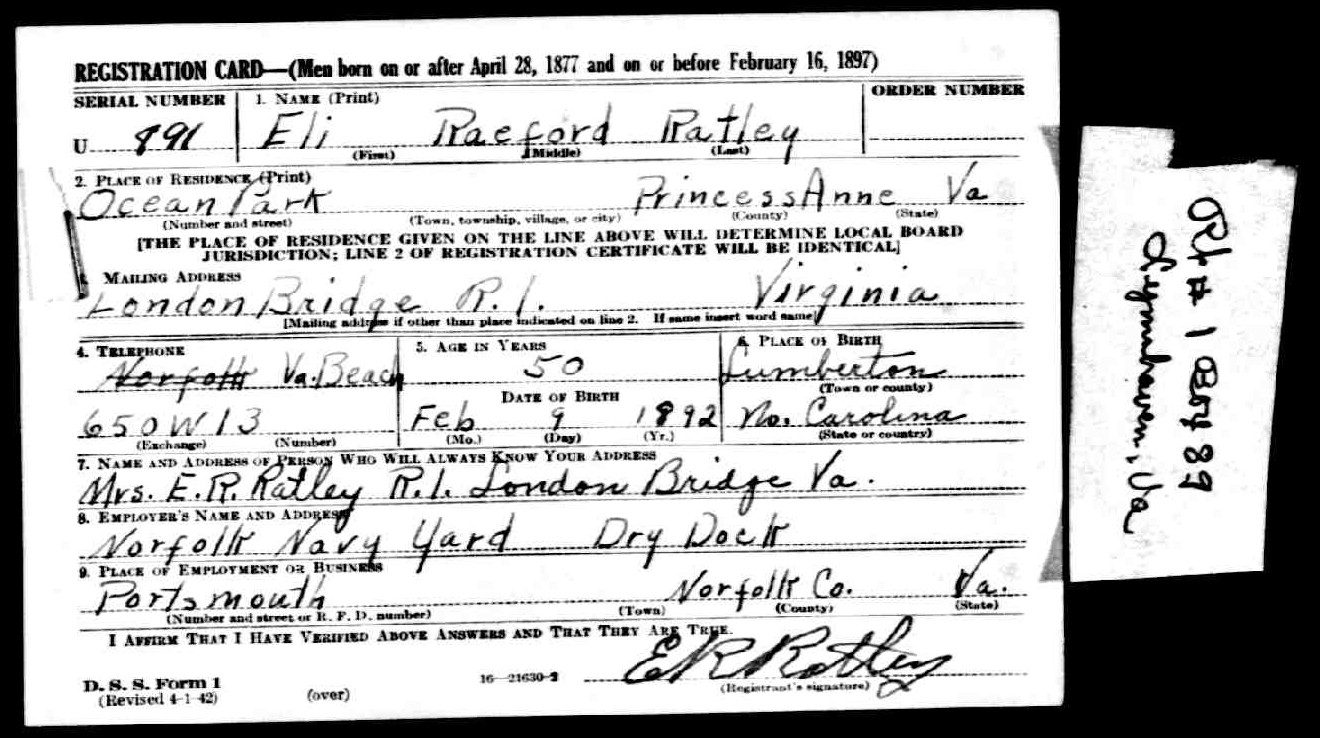 REGISTRATION CARD—(Men born on or after April 28, 1877 and on or before February 16, 1897)
SERIAL NUMBER 1. NAME (Print) ORDER NUMBER
U 891 Eli Raeford Ratley
(First) (Middle) (Last)
2. PLACE OF RESIDENCE (Print)
Ocean Park Princess Anne Va
(Number and street) (Town, township, village, or city) (County) (State)
[THE PLACE OF RESIDENCE GIVEN ON THE LINE ABOVE WILL DETERMINE LOCAL BOARD
JURISDICTION; LINE 2 OF REGISTRATION CERTIFICATE WILL BE IDENTICAL]
MAILING ADDRESS
London Bridge R.1. Virginia
[Mailing address if other than place indicated on line 2. If same insert word same]
4. TELEPHONE 5. AGE IN YEARS 6. PLACE OF BIRTH
Norfolk Va. Beach 50 Lumberton
(Town or county)
DATE OF BIRTH
650W13 Feb 9 1892 No. Carolina
(Exchange) (Number) (Mo.) (Day) (Yr.) (State or country)
7. NAME AND ADDRESS OF PERSON WHO WILL ALWAYS KNOW YOUR ADDRESS
Mrs. E.R. Ratley R.1. London Bridge Va.
8. EMPLOYER'S NAME AND ADDRESS
Norfolk Navy Yard Dry Dock
9. PLACE OF EMPLOYMENT OR BUSINESS
Portsmouth Norfolk Co. Va.
(Number and street or R. F. D. number) (Town) (County) (State)
I AFFIRM THAT I HAVE VERIFIED ABOVE ANSWERS AND THAT THEY ARE TRUE.
E R Ratley
D. S. S. Form 1 16—21630-2 (Registrant's signature)
(Revised 4-1-42) (over)
Rt # 1 Box 89
Lynnhaven, Va